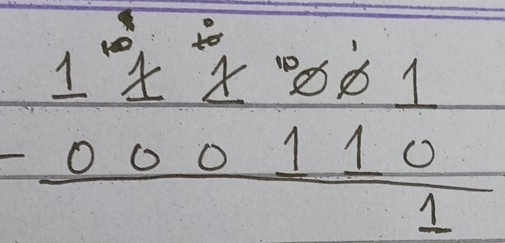 1 1 1 0 0 1
- 0 0 0 1 1 0
1